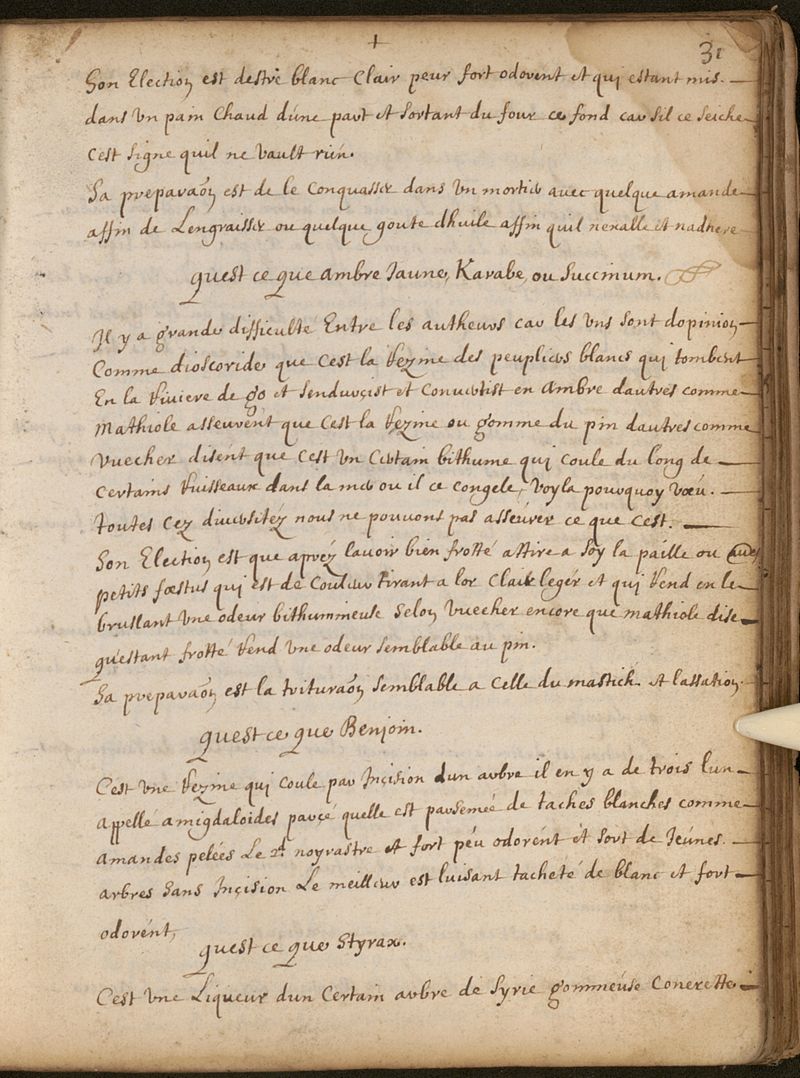 +
31
Son Election est destre blanc clair peur fort odorent et qui estant mis
dans un pain chaud dúne part et sortant du four ce fond car sil ce seiche
cest signe quil ne vault rién.
Sa preparaõn est de le conquasser dans un mortier avec quelque amande
affin de Lengraisser ou quelque goute dhuile affin quil nexalle et nadhere
quest ce que ambre Jaune, Karabe, ou Succinum.
Il y a grande difficulté Entre les autheurs car les uns sont dopinion
Comme dioscoride que cest la rezine des peupliers blancs qui tombent
En la riviere de go et sendurçist et convertist en ambre dautres comme
Mathiole asseurent que cest la rezine ou gomme du pin dautres comme
vuecher disent que cest un certain bithume qui coule du long de
certains ruisseaux dans la mer ou il ce congele, voyla pourquoy vœu.
toutes cez diversitéz nous ne pouvons pas asseúrer ce que cest.
Son Election est que apréz lavoir bien frotté attire a soy la paille ou autres
petits fœstus qui est de couleur tirant a lor clair legér et qui rend en le
brullant une odeur bithumineuse selon vuecher encore que mathiole dise
qu'estant frotté rend une odeur semblable au pin.
Sa preparaõn est la trituraõn semblable a celle du mastich. et lassation.
quest ce que Benjoin.
Cest une rezine qui coule par Inçision dun arbre il en y a de trois lun
appellé amigdaloides parçé quelle est parsemeé de taches blanches comme
amandes pelées Le 2d. noyrastre et fort péu odorént et sort de Jeúnes.
arbres sans Inçision Le meilleur est luisant tacheté de blanc et fort
odorént,
quest ce que Styrax.
Cest une Liqueur dun certain arbre de Syrie gommeúse concrette